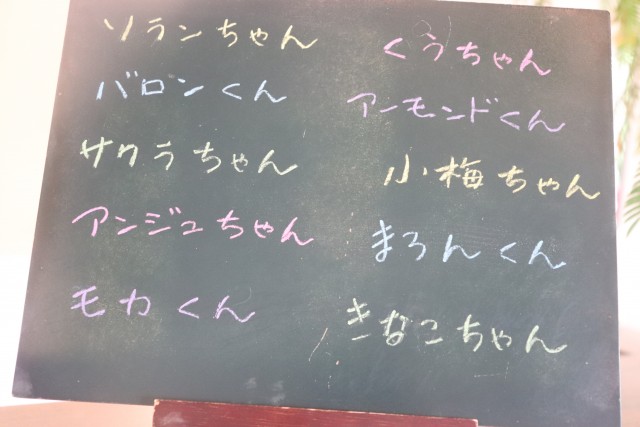 ソランちゃん
バロンくん
サクラちゃん
アンジュちゃん
モカくん
くうちゃん
アーモンドくん
小梅ちゃん
まろんくん
きなこちゃん